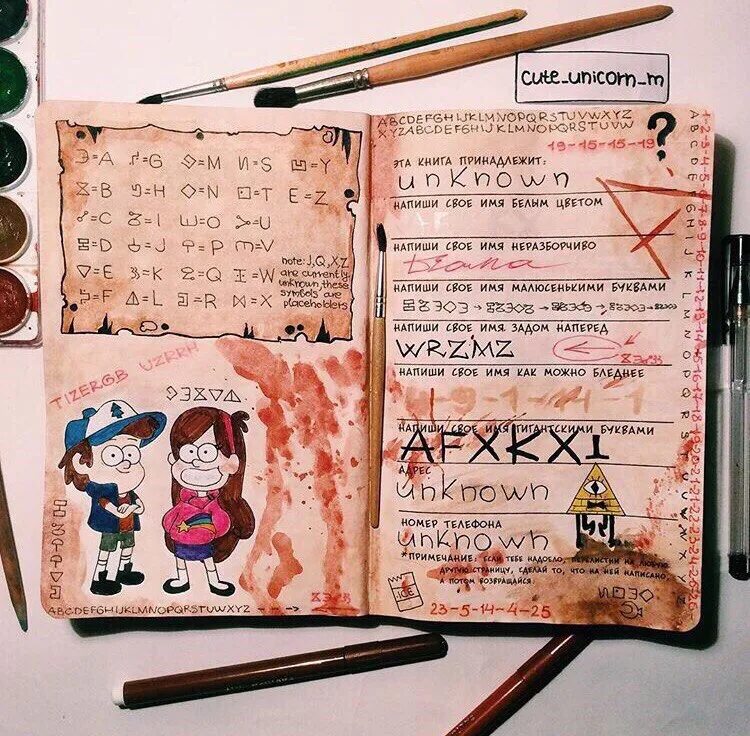 cute_unicorn_m
=A =G =M =S =Y
=B =H =N =T E=Z
=C =I =O =U
=D =J =P =V
=E =K =Q =W
=F =L =R =X
note: J,Q,X,Z
are currently
unknown, these
symbols are
placeholders
TIZERGB UZRRH
ABCDEFGHIJKLMNOPQRSTUVWXYZ
ABCDEFGHIJKLMNOPQRSTUVWXYZ
XYZABCDEFGHIJKLMNOPQRSTUVW
?
19-15-15-19
ЭТА КНИГА ПРИНАДЛЕЖИТ:
unknown
НАПИШИ СВОЕ ИМЯ БЕЛЫМ ЦВЕТОМ
НАПИШИ СВОЕ ИМЯ НЕРАЗБОРЧИВО
НАПИШИ СВОЕ ИМЯ МАЛЮСЕНЬКИМИ БУКВАМИ
НАПИШИ СВОЕ ИМЯ ЗАДОМ НАПЕРЕД
WRZMZ
НАПИШИ СВОЕ ИМЯ КАК МОЖНО БЛЕДНЕЕ
4-9-1-14-1
НАПИШИ СВОЕ ИМЯ ГИГАНТСКИМИ БУКВАМИ
AFXKX
АДРЕС
unknown
НОМЕР ТЕЛЕФОНА
unknown
*ПРИМЕЧАНИЕ: ЕСЛИ ТЕБЕ НАДОЕЛО, ПЕРЕЛИСТНИ НА ЛЮБУЮ
ДРУГУЮ СТРАНИЦУ, СДЕЛАЙ ТО, ЧТО НА НЕЙ НАПИСАНО,
А ПОТОМ ВОЗВРАЩАЙСЯ.
ICE
23-5-14-4-25
ABCDEFGHIJKLMNOPQRSTUVWXYZ
1-2-3-4-5-6-7-8-9-10-11-12-13-14-15-16-17-18-19-20-21-22-23-24-25-26